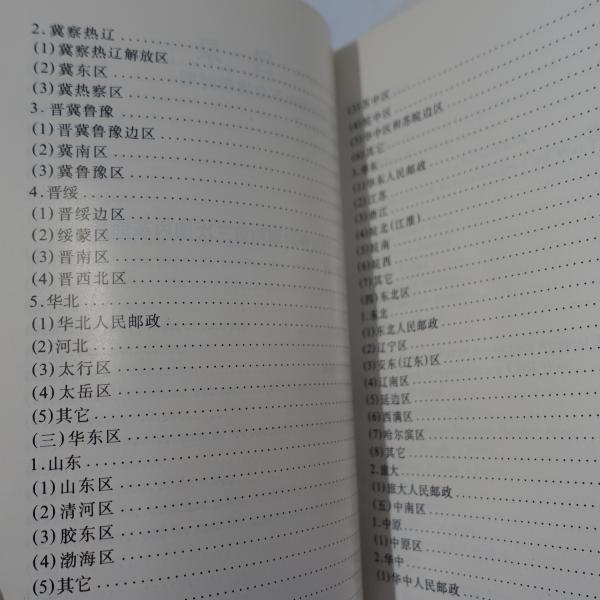 2.冀察热辽
(1)冀察热辽解放区
(2)冀东区
(3)冀热察区
3.晋冀鲁豫
(1)晋冀鲁豫边区
(2)冀南区
(3)冀鲁豫区
4.晋绥
(1)晋绥边区
(2)绥蒙区
(3)晋南区
(4)晋西北区
5.华北
(1)华北人民邮政
(2)河北
(3)太行区
(4)太岳区
(5)其它
(三)华东区
1.山东
(1)山东区
(2)清河区
(3)胶东区
(4)渤海区
(5)其它
(3)苏中区
(4)皖中区
(5)华中区和苏皖边区
(6)其它
3.华东
(1)华东人民邮政
(2)江苏
(3)浙江
(4)皖北(江淮)
(5)皖南
(6)皖西
(7)其它
(四)东北区
1.东北
(1)东北人民邮政
(2)辽宁区
(3)安东(辽东)区
(4)辽南区
(5)延边区
(6)西满区
(7)哈尔滨区
(8)其它
2.旅大
(1)旅大人民邮政
(五)中南区
1.中原
(1)中原区
2.华中
(1)华中人民邮政